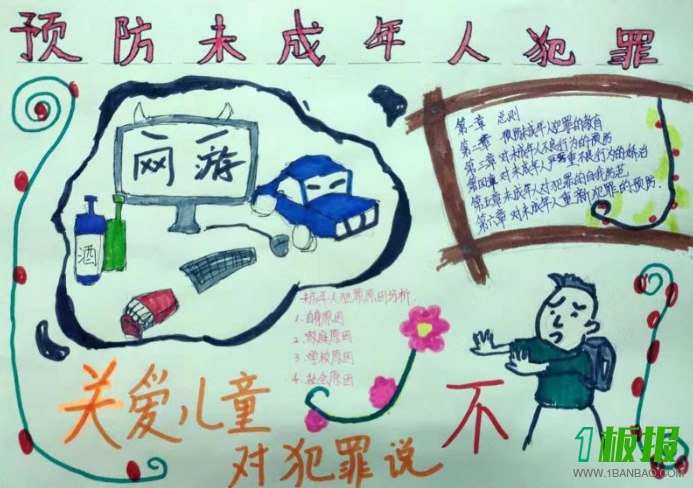 预防未成年人犯罪
网游
酒
第一章 总则
第二章 预防未成年人犯罪的教育
第三章 对未成年人不良行为的预防
第四章 对未成年人严重不良行为的矫治
第五章 未成年人对犯罪的自我防范
第六章 对未成年人重新犯罪的预防.
成年人犯罪原因分析.
1. 自身原因
2. 家庭原因
3. 学校原因
4. 社会原因
关爱儿童
对犯罪说
不
1板报
WWW.1BANBAO.COM